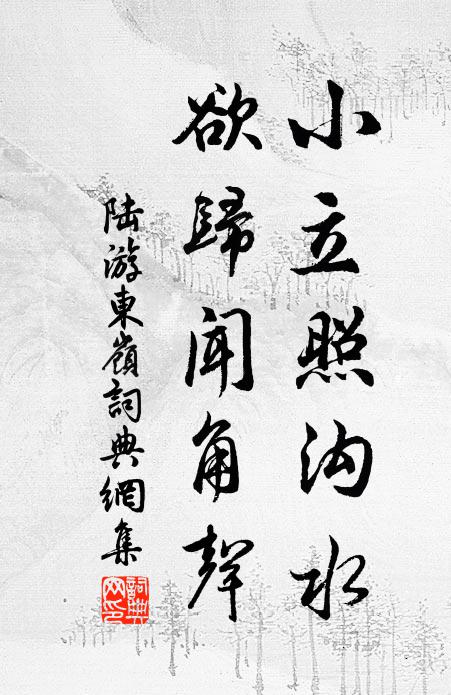 小立照沟水
欲歸闻角聲
陆游東嶺詞典網集
詞典
网印